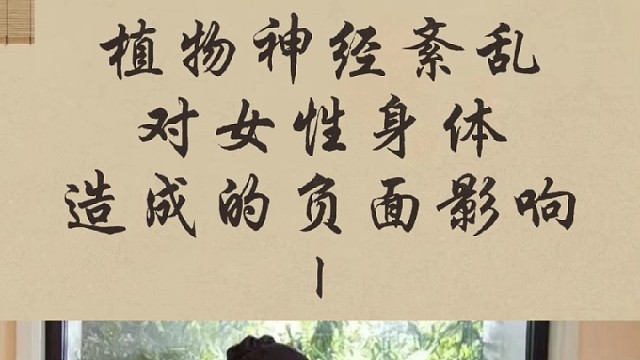 植物神经紊乱
对女性身体
造成的负面影响
|